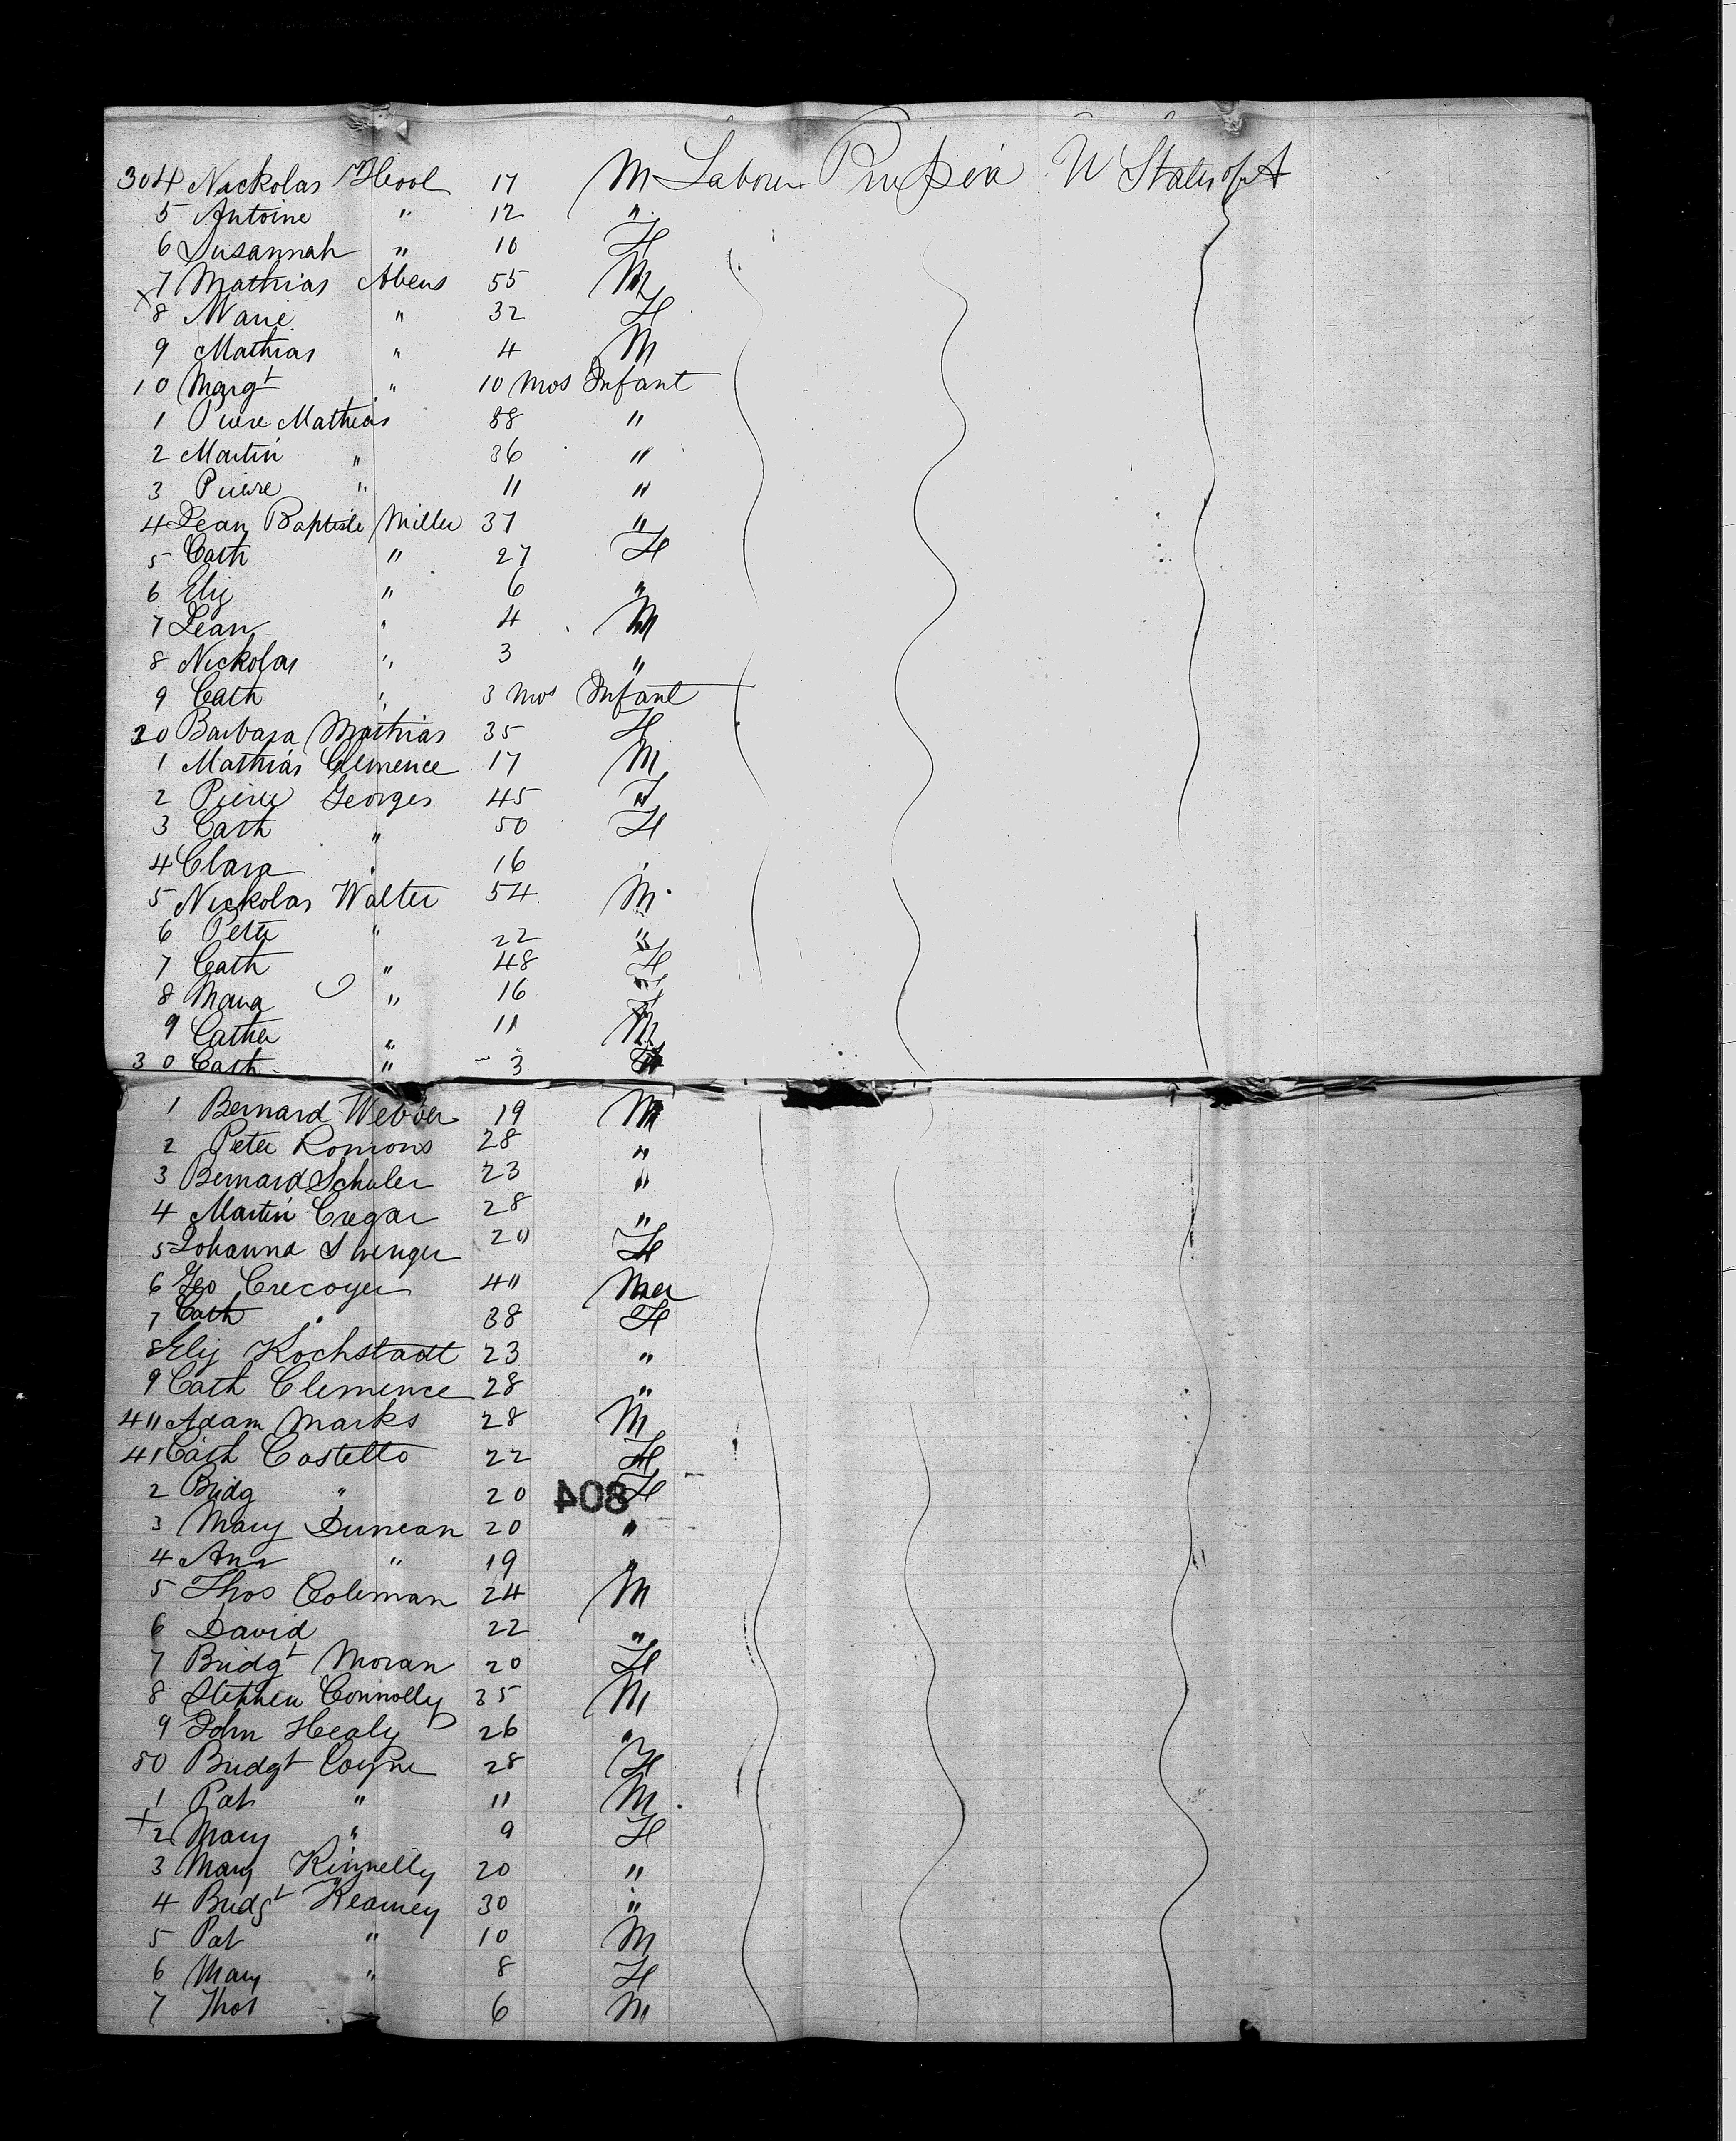 304 Nickolas Hool 17 M Labourer Prussia U States of A
5 Antoine " 12 "
6 Susannah " 10 F
7 Mathias Abens 55 M
x 8 Marie " 32 F
9 Mathias " 4 M
10 Margt " 10 Mos Infant
1 Piere Mathias 38 "
2 Martin " 36 "
3 Pierre " 11 "
4 Jean Baptiste Miller 37 "
5 Cath " 27 F
6 Eliz " 6 "
7 Jean " 4 M
8 Nickolas " 3 "
9 Cath " 3 Mos Infant
20 Barbara Mathias 35 F
1 Mathias Clemence 17 M
2 Pierre Georges 45 "
3 Cath " 50 F
4 Clara " 16 "
5 Nickolas Walter 54 M
6 Peter " 22 "
7 Cath " 48 F
8 Maria " 16 "
9 " 11 M
30 Cath " 3 F
1 Bernard Webber 19 M
2 Peter Romons 28 "
3 Bernard Schuler 23 "
4 Martin Cregar 28 "
5 Johanna 20 F
6 Geo Crecoyer 40 M
7 Cath " 38 F
8 Eliz Kochstadt 23 "
9 Cath Clemence 28 "
40 Adam Marks 28 M
41 Cath Costello 22 F
2 Bridg " 20 F
408
3 Mary Duncan 20 "
4 Ann " 19 "
5 Thos Coleman 24 M
6 David 22 "
7 Bridgt Moran 20 F
8 Stephen Connolly 35 M
9 John Healy 26 "
50 Bridgt Coyne 28 F
1 Pat " 11 M
+ 2 Mary " 9 F
3 Mary Kinnelly 20 "
4 Bridgt Kearney 30 "
5 Pat " 10 M
6 Mary " 8 F
7 Thos 6 M